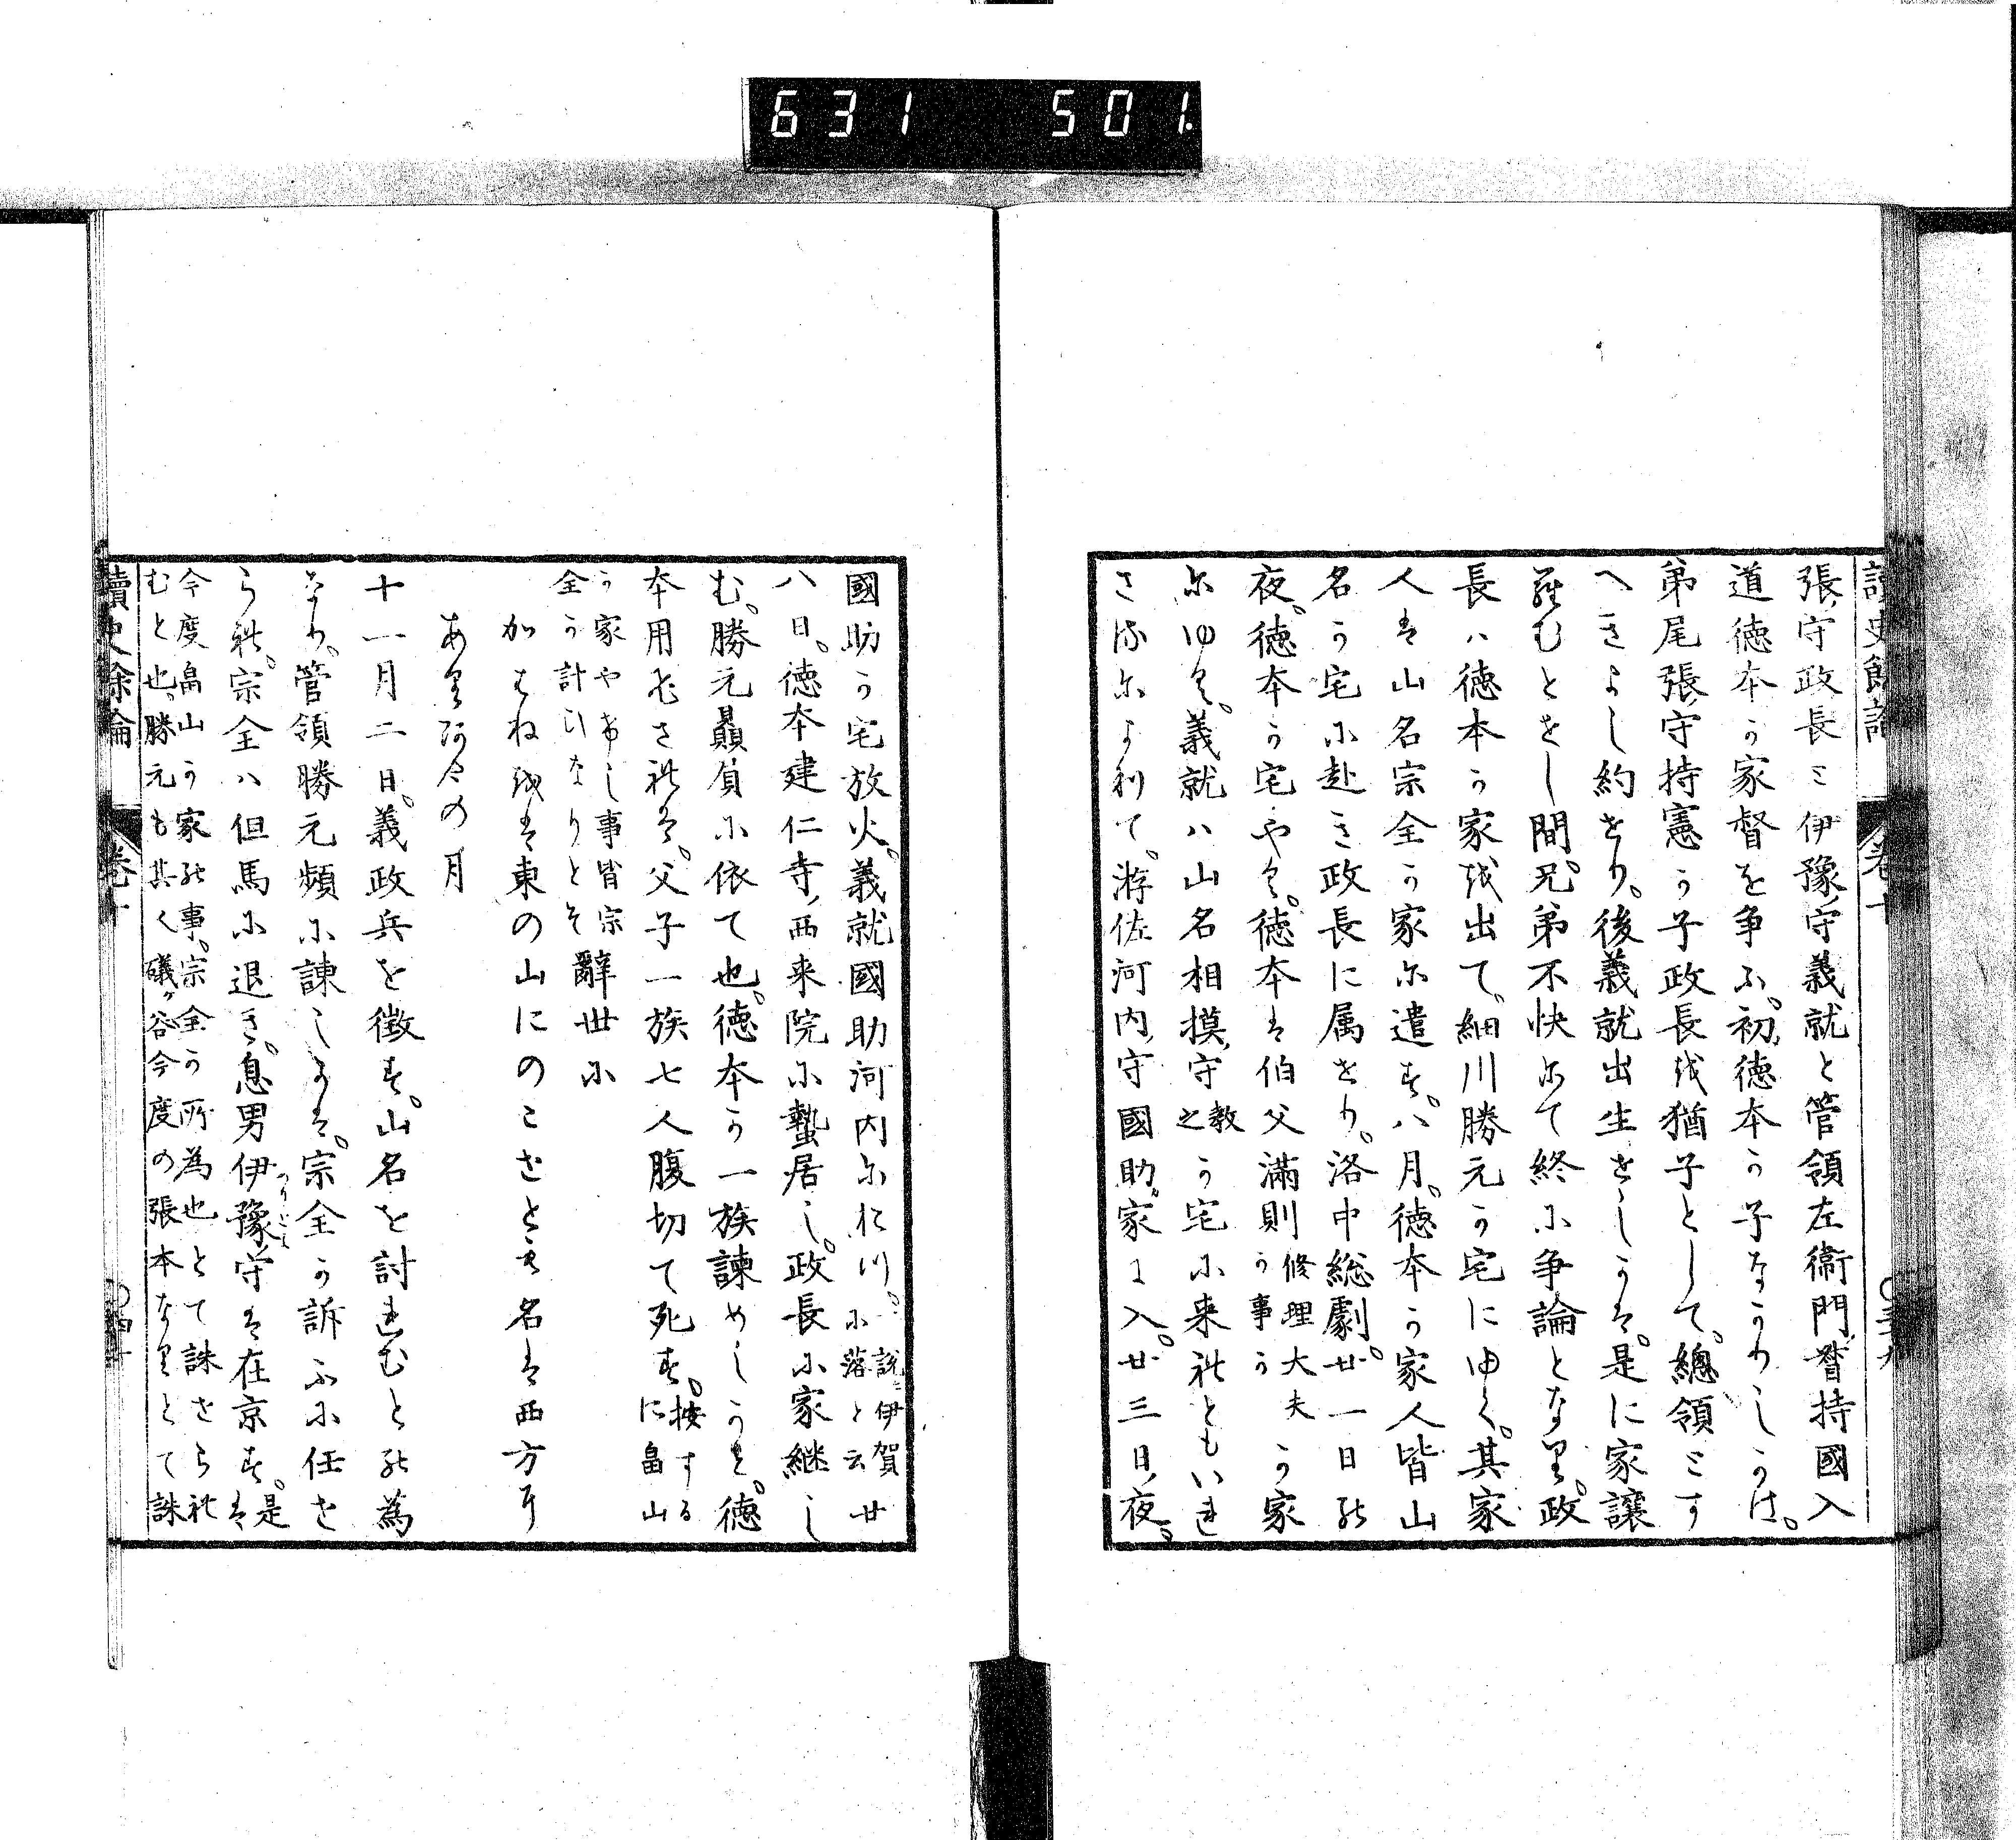 631 501
讀史餘論 卷十
張ノ守政長ミ伊豫ノ守義就と管領左衛門ノ督持國入
道徳本う家督を争ふ。初、徳本う子なうりしうは。
弟尾張ノ守持憲う子政長を猶子として。總領ミす
へきよし約せり。後義就出生せしうは。是に家讓
らむとせし間。兄弟不快にて終に争論となる。政
長ハ徳本う家を出て。細川勝元う宅にゆく。其家
人は山名宗全う家に遣す。八月。徳本う家人皆山
名う宅に赴き政長に属せり。洛中総劇。廿一日の
夜。徳本う宅やく。徳本は伯父滿則修理大夫う事うう家
にゆく。義就ハ山名相摸ノ守教之う宅に来れともいれ
さるによりて。游佐河内ノ守國助ヵ家に入。廿三日ノ夜。
國助う宅放火。義就國助河内におつ。一説ニ伊賀に落と云廿
八日。徳本建仁寺ノ西来院に蟄居し。政長に家継し
む。勝元贔負に依て也。徳本う一族諫めしうと。徳
本用ひされは。父子一族七人腹切て死す。按するに畠山
う家やけし事皆宗全う計ひなりとそ辭世に
かはね越は東の山にのこせとも名は西方に
ある有明の月
十一月二日。義政兵を徴す。山名を討れむとの為
なり。管領勝元頻に諫しよは。宗全う訴ふに任せ
られ。宗全ハ但馬に退き。息男伊豫ノ守は在京す。是は
今度畠山う家の事。宗全う所為也とて誅せられ
むと也。勝元も其く礒ヶ谷今度の張本なるとて誅
讀史餘論 卷十 〇四十